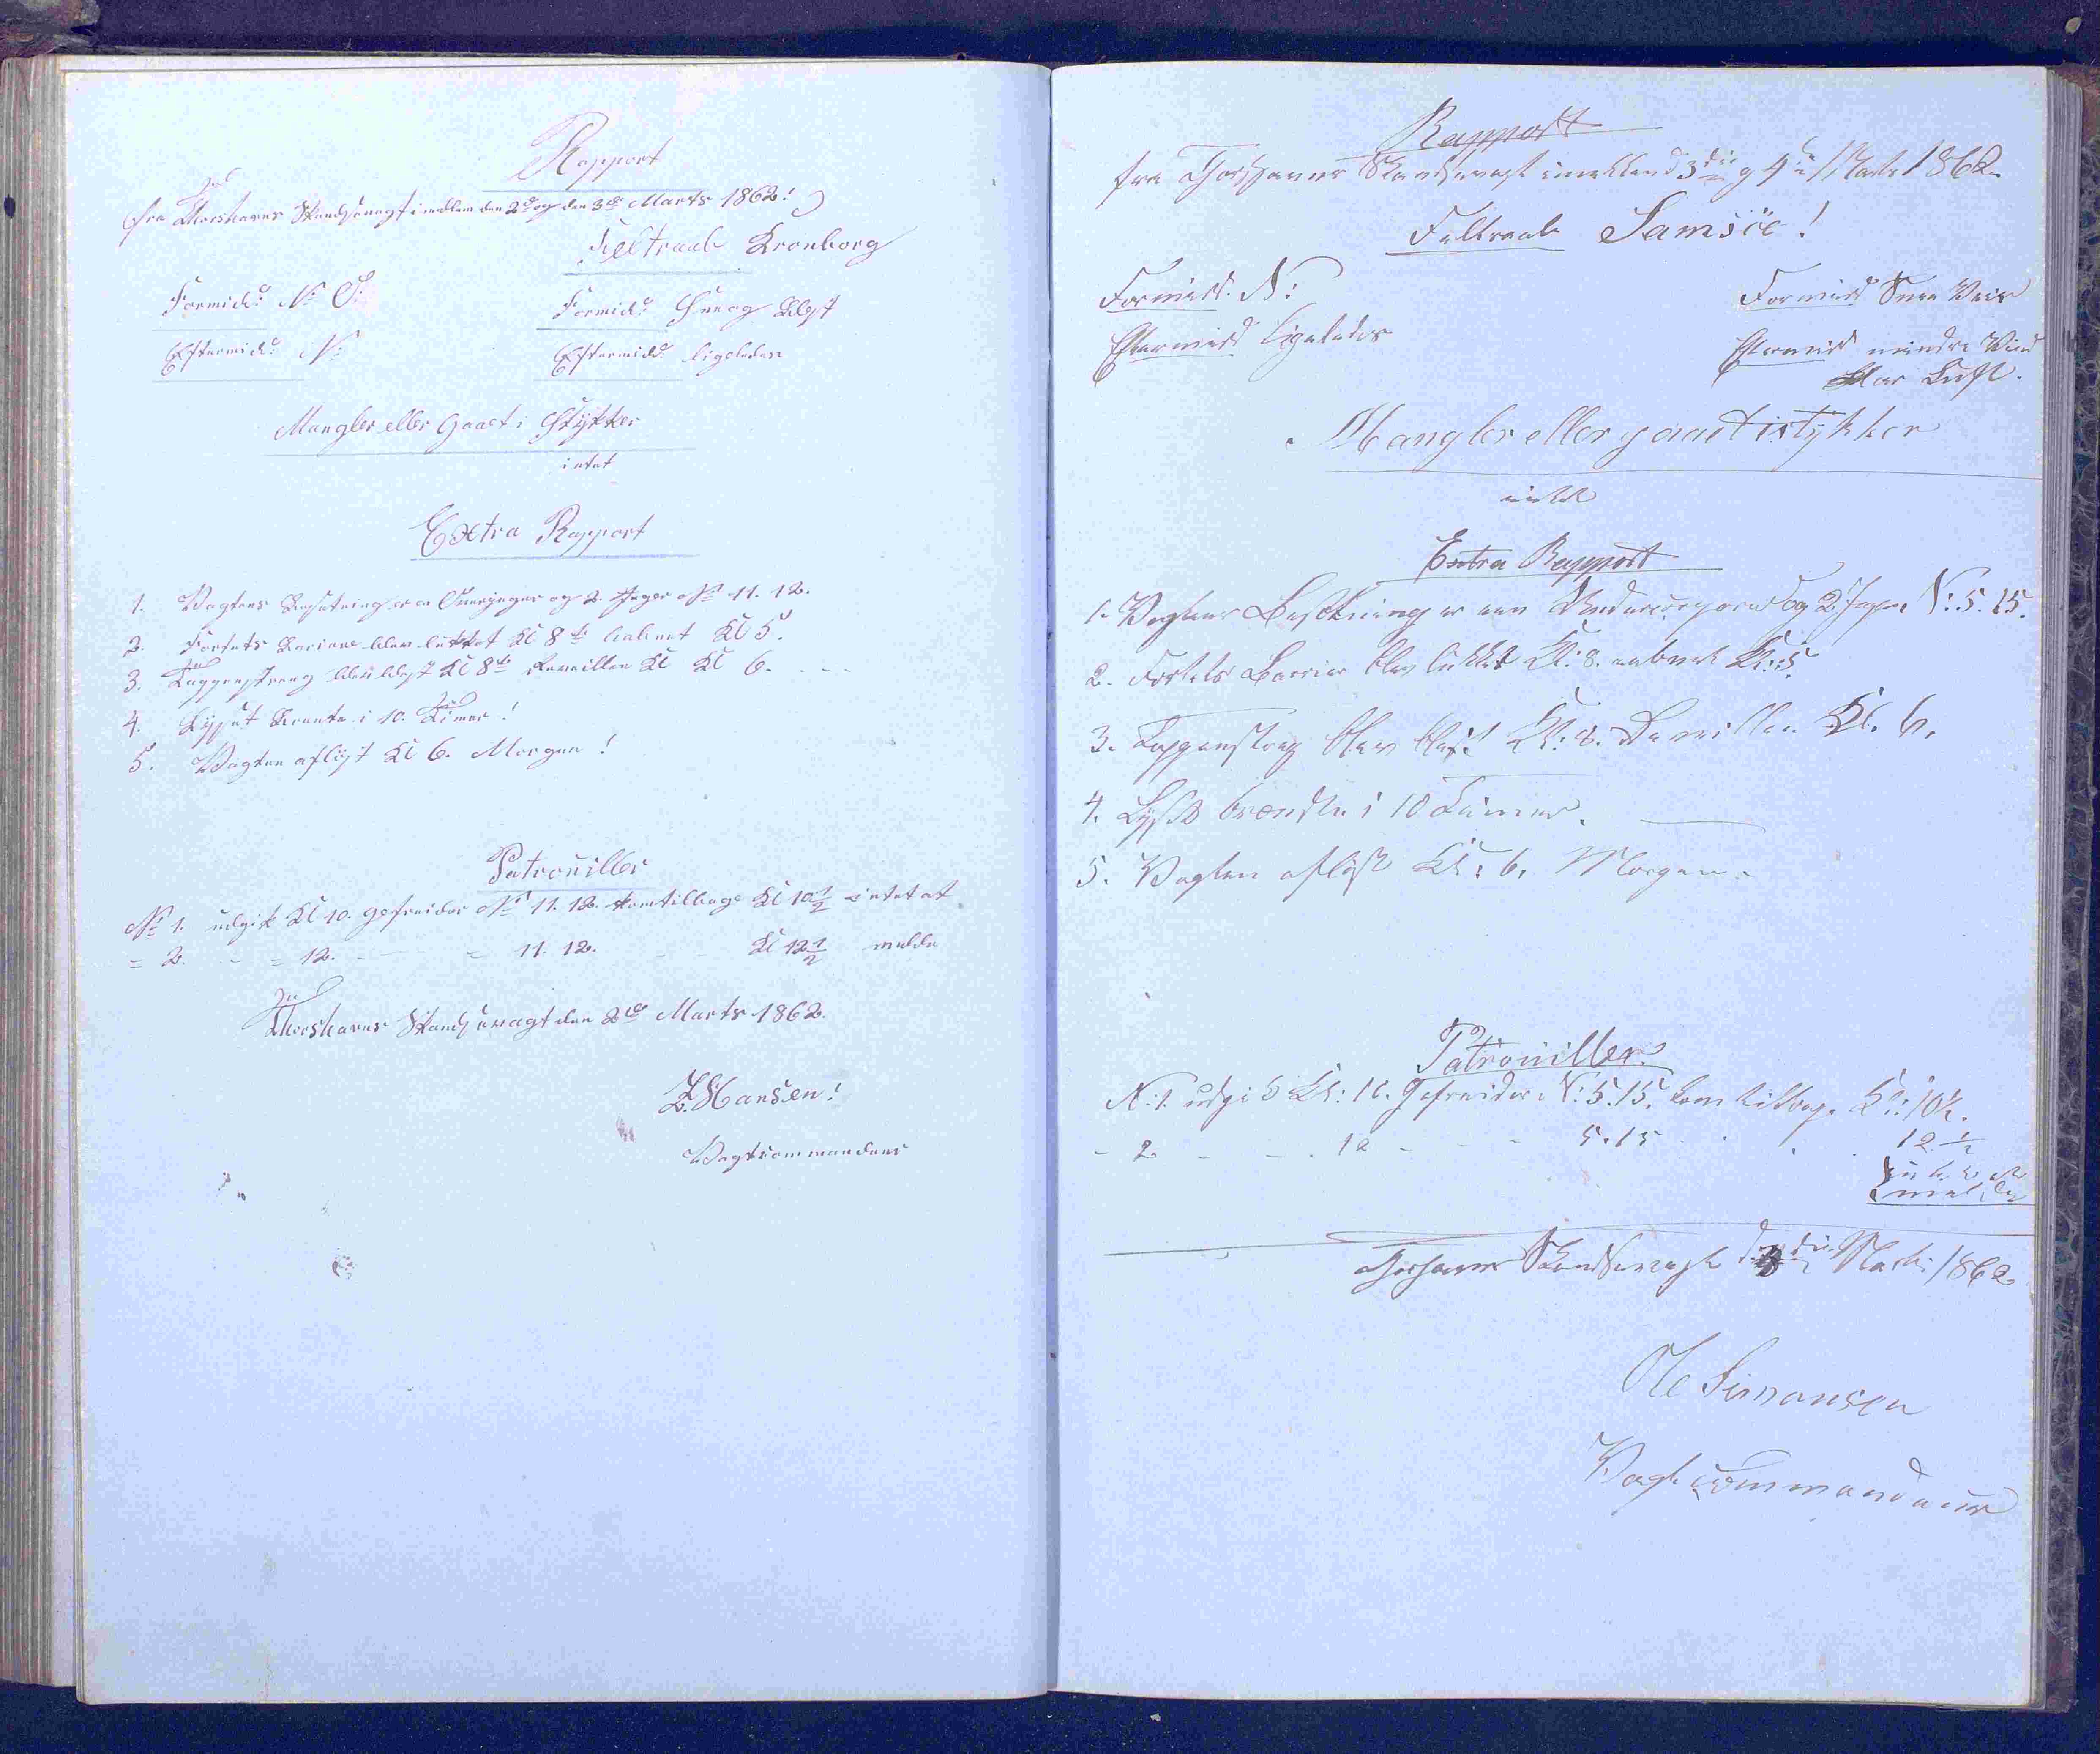 Rapport
fra Thorshavns Skandsevagt imellem den 2d og den 3de Marts 1862!
Feltraab Kronborg
Formidd: N: O:
Formidd: Snee og Blæst
Eftermidd: N:
Eftermidd: ligeledes
Mangler eller Gaaet i Stykker
intet
Extra Rapport
1. Vagtens Besætning er en Overjæger og 2 Jæger No 11. 12.
2. Fortets Bariere blev lukket Kl 8te aabnet Kl 5.
3. Tappenstreg blev blæst Kl 8te Reveillen Kl Kl 6.
4. Lyset Brente i 10. Timer!
5. Vagten afløst Kl 6. Morgen!
Patrouiller
No 1. udgik Kl 10. gefreider No 11. 12. kom tilbage Kl 10½ intet at
= 2. - = 12. - = 11. 12. - - Kl 12½ melde
Thorshavns Skandsevagt den 2de Marts 1862.
Z. Hansen!
Vagtcommandeur
Rapport
fra Thorshavns Skandsevagt imellem d 3die og 4de Marts 1862
Feltraab Samsöe!
Formidd. N:
Formidd Snee Veir
Eftermidd ligeledes
Eftermidd mindre Vind
klar Luft.
Mangler eller gaaet istykker
intet
Extra Rapport
1. Vagtens Besætning er een Undercorporal og 2 Jæger N: 5. 15.
2. Fortets Barrier blev lukket Kl: 8. aabnet Kl: 5
3. Tappenstreg blev blæst Kl: 8. Reveillen Kl. 6.
4. Lyset brændte i 10 Timer.
5. Vagten afløst Kl: 6. Morgen.
Patrouiller
N: 1. udgik Kl: 10. Gefreider N: 5. 15. kom tilbage Kl: 10½.
- 2 - - 12 - - - 5. 15 - - 12½
intet at
melde
Thorshavns Skandsevagt den 3die Marts 1862
Ole Simonsen
Vagtcommandeur